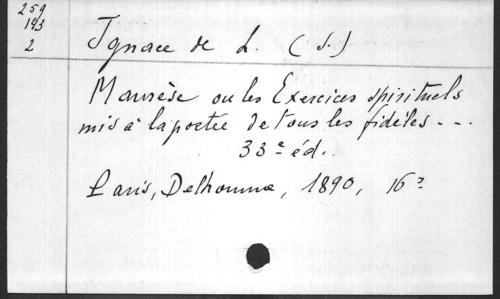 259
193
2
Ignace de L. (S.)
Manrèse ou les Exercices spirituels
mis à la portée de tous les fidèles ---
33e éd.
Paris, Delhomme, 1890, 16°